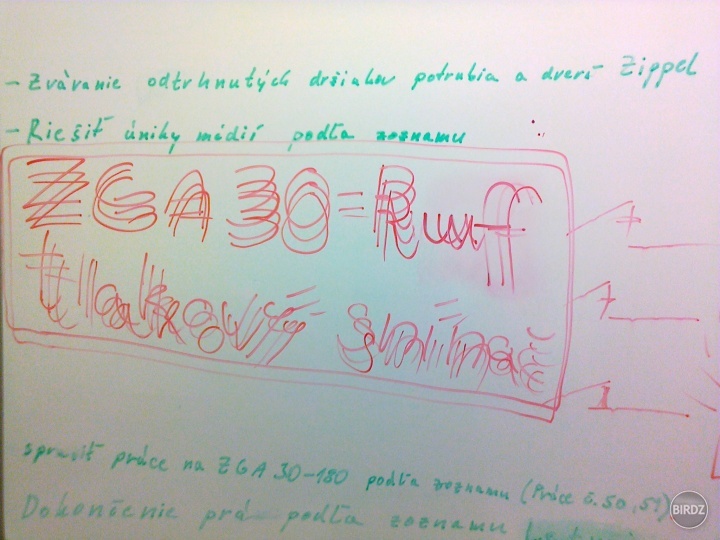 - Zváranie odtrhnutých držiakov potrubia a dverí Zippel
- Riešiť úniky médií podľa zoznamu
ZGA 30 = Ruff
tlakový snímač
spraviť práce na ZGA 30-180 podľa zoznamu (Práce č. 50, 51)
Dokončenie prá podľa zoznamu
BIRDZ